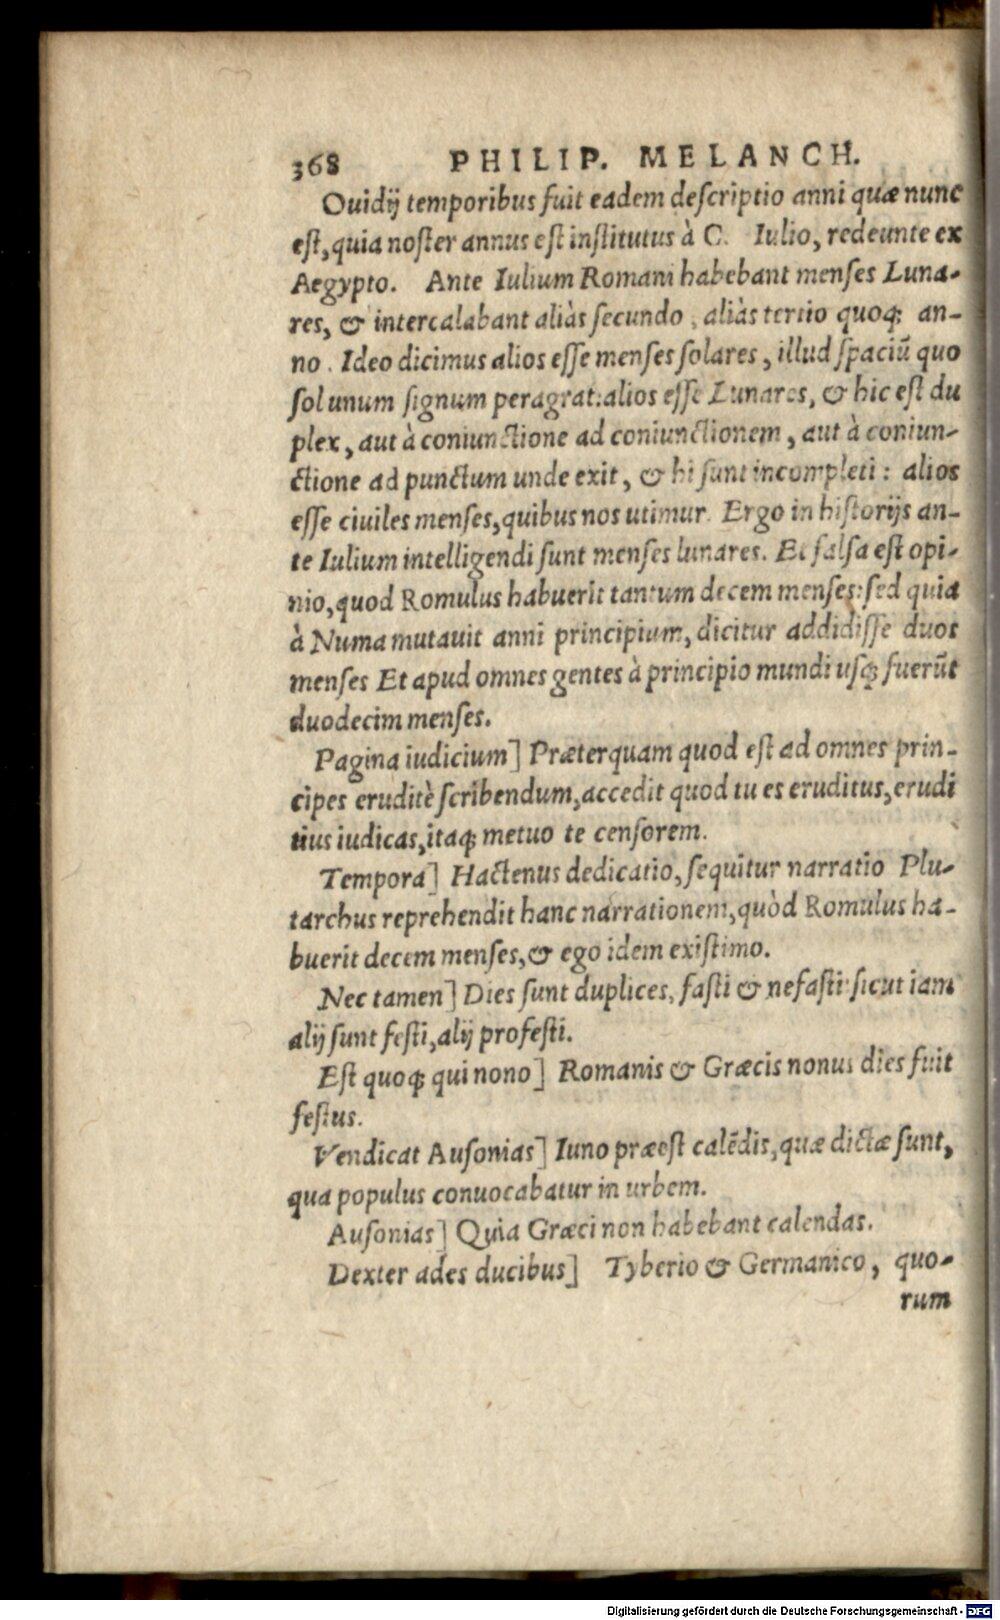 368 PHILIP. MELANCH.
Ouidij temporibus fuit eadem deſcriptio anni quæ nunc
eſt, quia noſter annus eſt inſtitutus à C. Iulio, redeunte ex
Aegypto. Ante Iulium Romani habebant menſes Luna-
res, & intercalabant aliàs ſecundo, aliàs tertio quoq; an-
no. Ideo dicimus alios eſſe menſes ſolares, illud ſpaciū quo
ſol unum ſignum peragrat: alios eſſe Lunares, & hic eſt du
plex, aut à coniunctione ad coniunctionem, aut à coniun-
ctione ad punctum unde exit, & hi ſunt incompleti: alios
eſſe ciuiles menſes, quibus nos utimur. Ergo in hiſtorijs an-
te Iulium intelligendi ſunt menſes lunares. Et falſa eſt opi-
nio, quod Romulus habuerit tantum decem menſes: ſed quia
à Numa mutauit anni principium, dicitur addidiſſe duos
menſes Et apud omnes gentes à principio mundi uſq; fuerūt
duodecim menſes.
Pagina iudicium] Præterquam quod eſt ad omnes prin-
cipes eruditè ſcribendum, accedit quod tu es eruditus, erudi
tius iudicas, itaq; metuo te cenſorem.
Tempora] Hactenus dedicatio, ſequitur narratio Plu-
tarchus reprehendit hanc narrationem, quòd Romulus ha-
buerit decem menſes, & ego idem exiſtimo.
Nec tamen] Dies ſunt duplices, faſti & nefaſti: ſicut iam
alij ſunt feſti, alij profeſti.
Eſt quoq; qui nono] Romanis & Græcis nonus dies fuit
feſtus.
Vendicat Auſonias] Iuno præeſt calēdis, quæ dictæ ſunt,
qua populus conuocabatur in urbem.
Auſonias] Quia Græci non habebant calendas.
Dexter ades ducibus] Tyberio & Germanico, quo-
rum
Digitalisierung gefördert durch die Deutsche Forschungsgemeinschaft - DFG